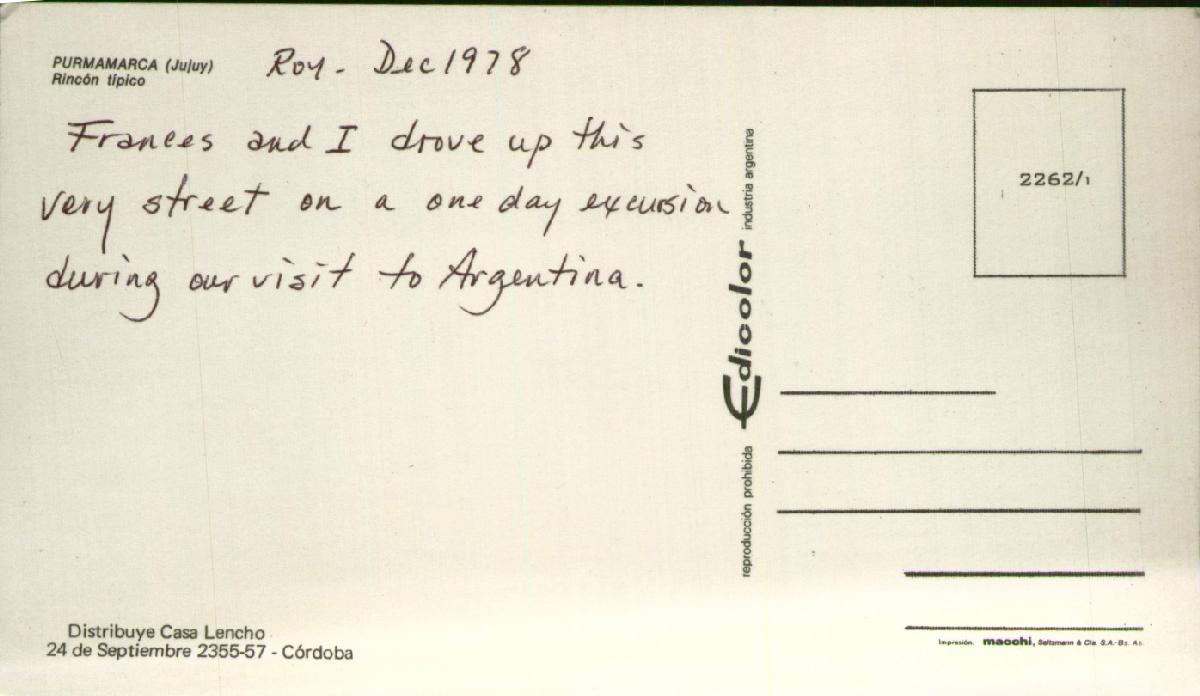 PURMAMARCA (Jujuy)
Rincón típico
Roy - Dec 1978
Frances and I drove up this
very street on a one day excursion
during our visit to Argentina.
Distribuye Casa Lencho
24 de Septiembre 2355-57 - Córdoba
reproducción prohibida Edicolor industria argentina
2262/1
Impresión. macchi, Saltzmann & Cia. S.A.-Bs. As.